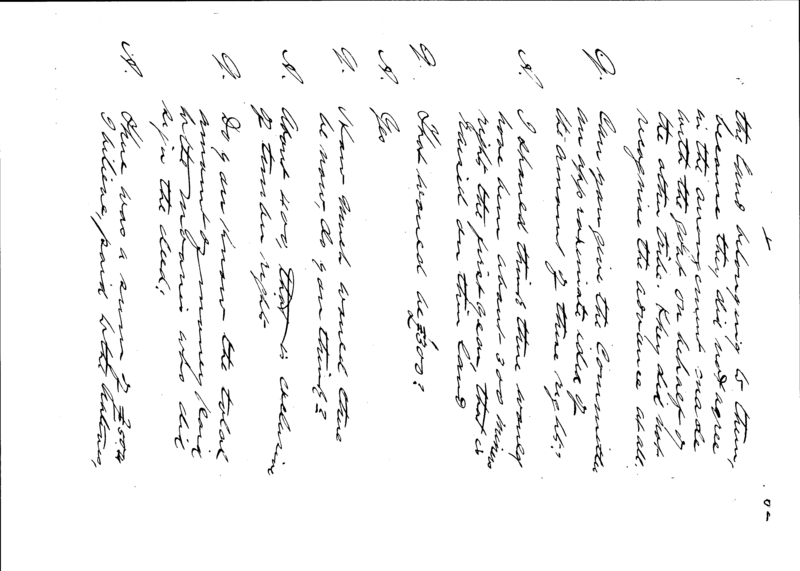 the land belonging to them,
because they did not agree
in the arrangement made
with the Govt on behalf of
the other tribe. They did not
recognise the advance at all.
Q. Can you give the Committee
an approximate idea of
the amount of those rights?
A. I should think there would
have been about 300
right the first year, that is
on this land
Q. That would be £300?
A. Yes
Q. How much would there
be now, do you think?
A. About 400, that is exclusive
of timber rights
Q. Do you know the total
amount of money paid
to the natives who did
sign the deed?
A. There was a sum of
I believe, paid to the natives,